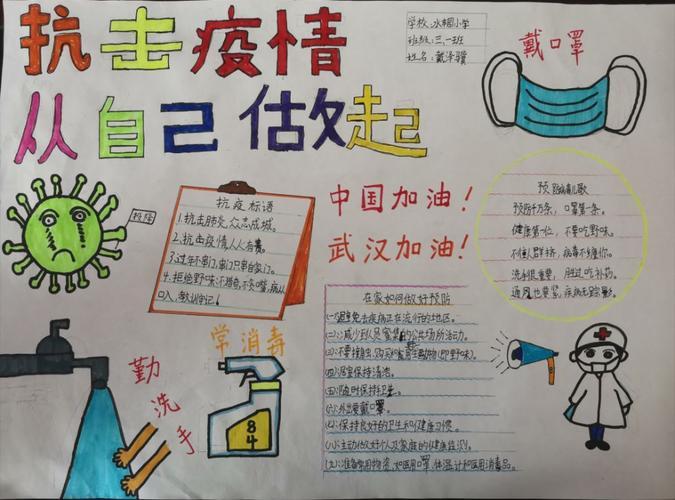 抗击疫情
从自己做起
学校：水桐小学
班级：三、一班
姓名：戴泽骥
戴口罩
投降
抗疫标语
1.抗击肺炎,众志成城。
2.抗击疫情,人人有责。
3.过年不串门,串门只串自家门。
4.拒绝野味
口入,教训牢记！
中国加油！
武汉加油！
预防病毒儿歌
预防千万条，口罩第一条。
健康第一位，不要吃野味。
不往人群挤，病毒不缠你。
洗手很重要，胜过吃补药。
通风也要紧,疾病无踪影。
勤洗手
常消毒
84
在家如何做好预防
(一)避免去疾病正在流行的地区。
(二)减少到人员密集的公共场所活动。
(三)不要接触、购买和食用野生动物(即野味)。
(四)居室保持清洁。
(五)随时保持卫生。
(六)外出要戴口罩。
(七)保持良好的卫生和健康习惯。
(八)主动做好个人及家庭的健康监测。
(九)准备常用物资,如医用口罩,体温计和医用消毒品。